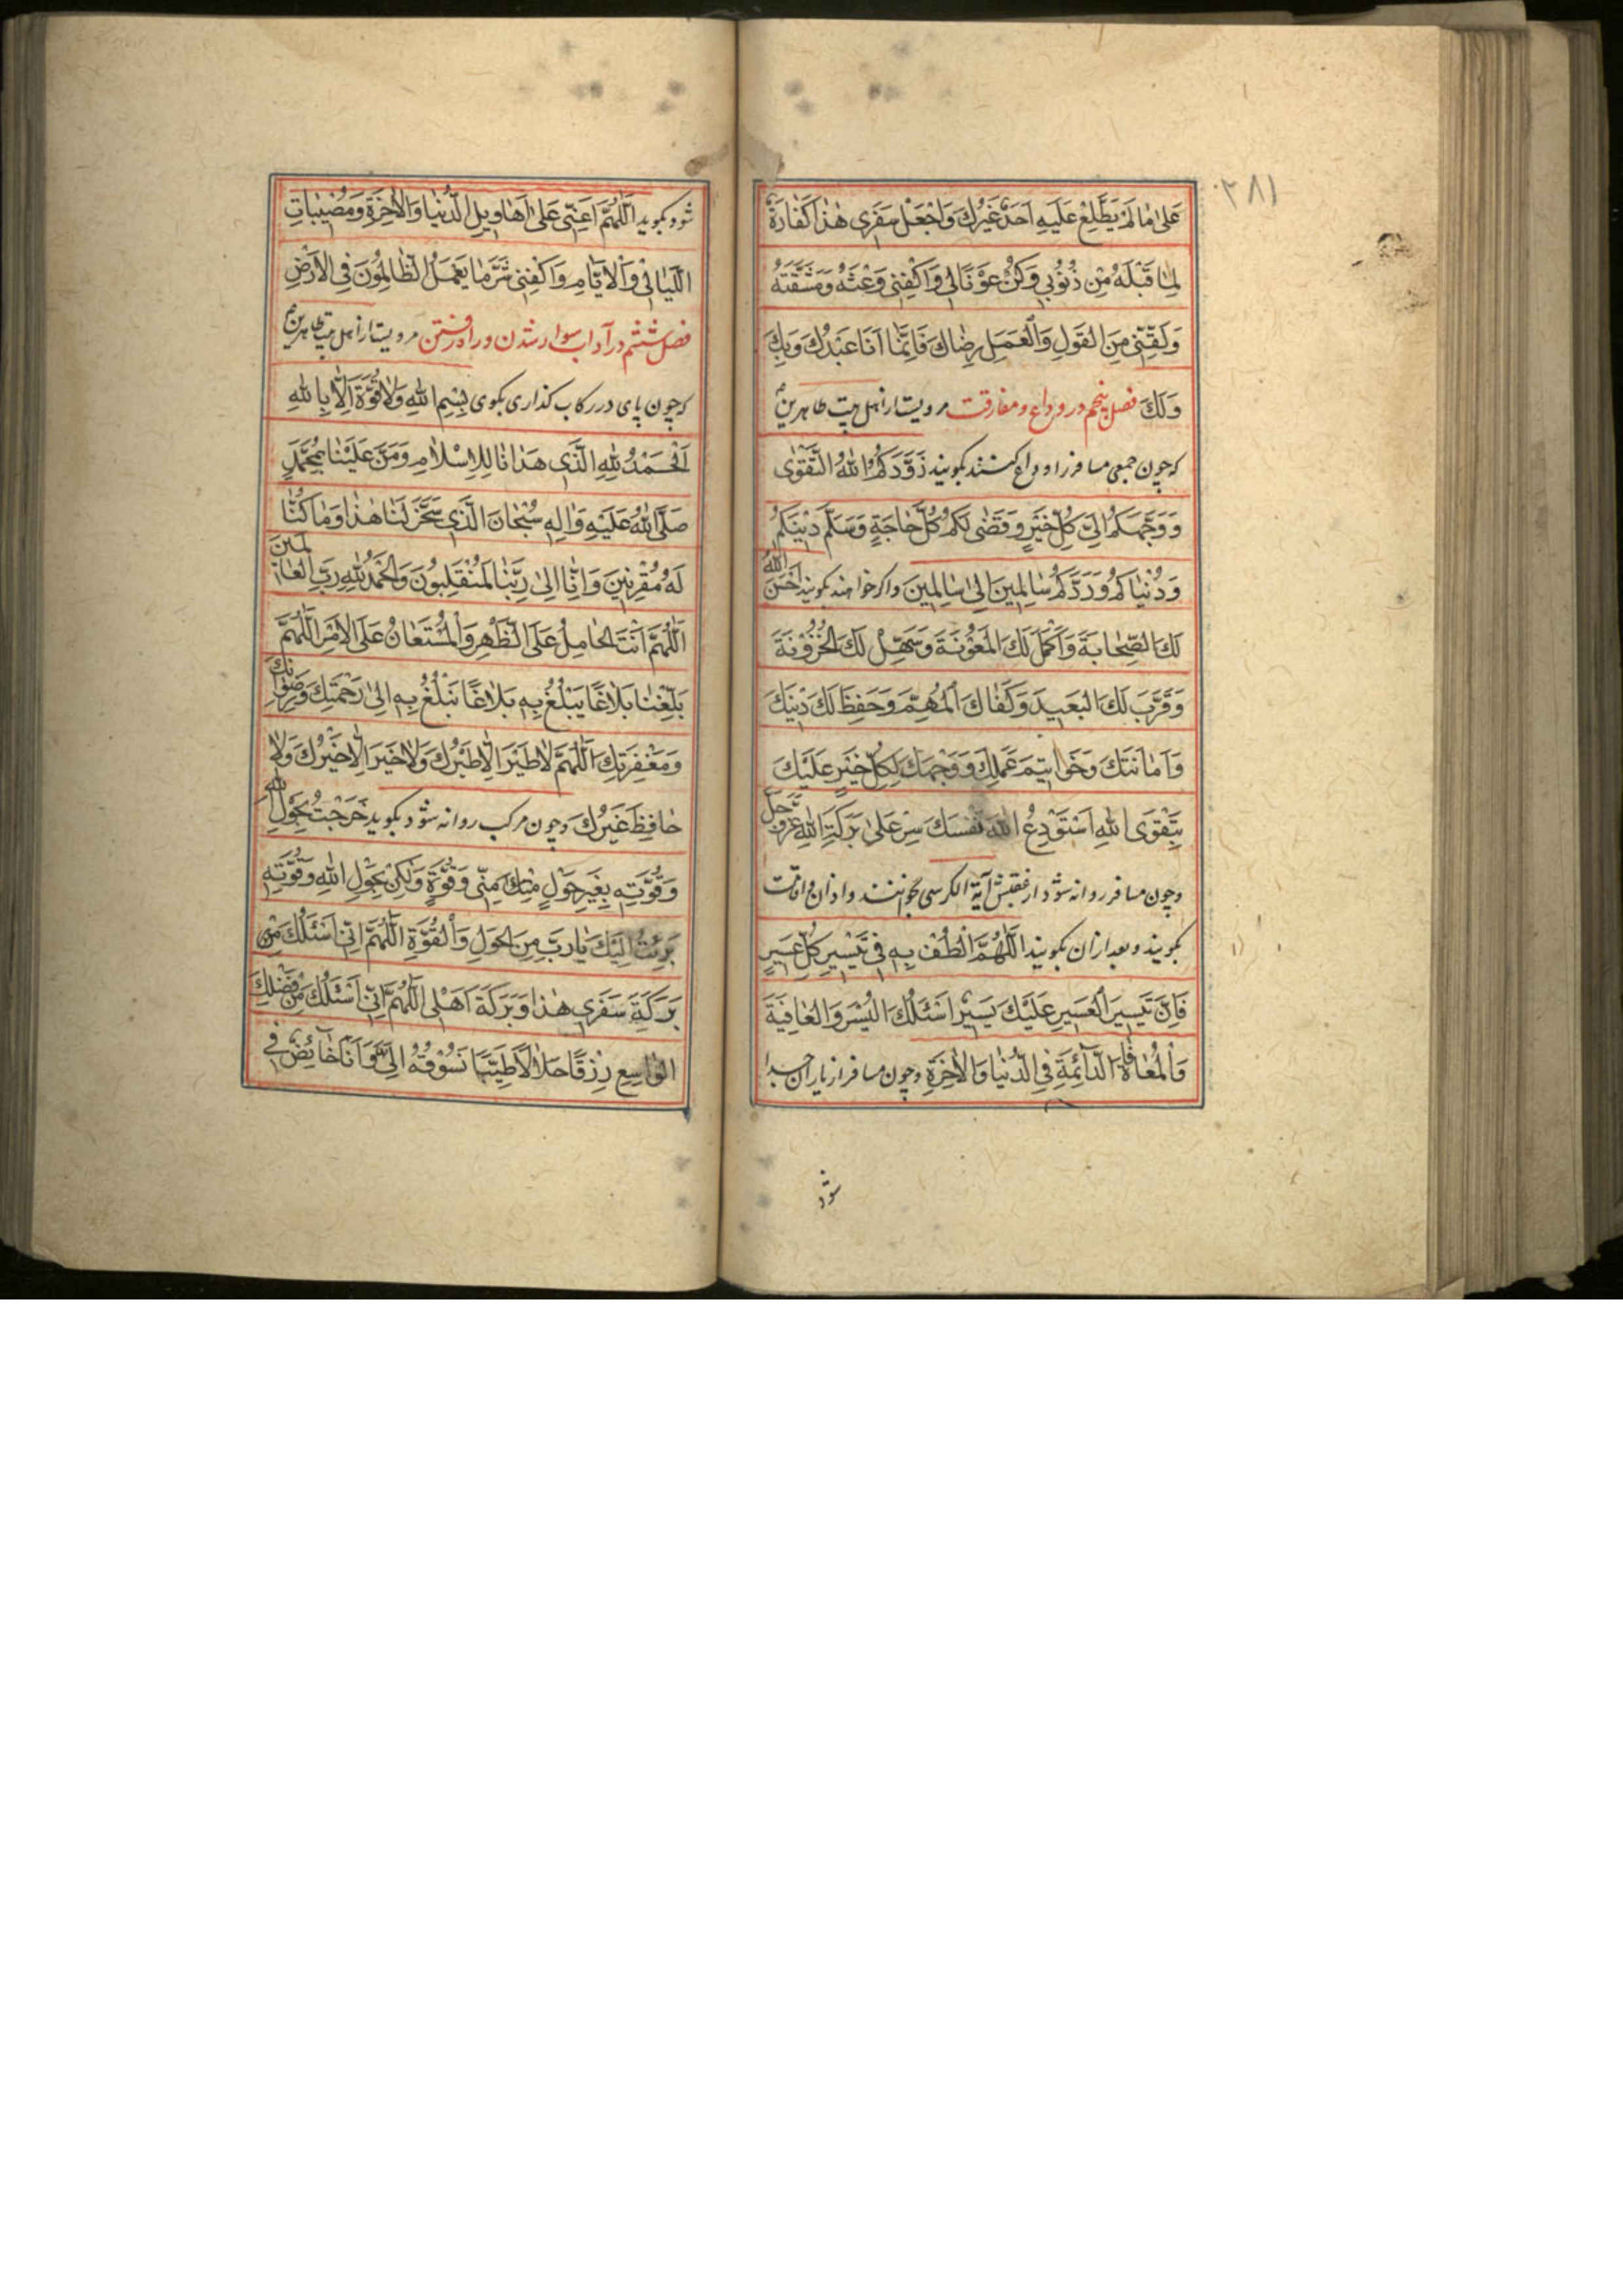 ۲۸۱
عَلىٰ مٰا لَمْ يَطَّلِعْ عَلَيْهِ اَحَدٌ غَيْرُكَ وَاجْعَلْ سَفَرِى هٰذٰا كَفّٰارَةً
لِمٰا قَبْلَهُ مِنْ ذُنُوبِى وَكُنْ عَوْنًا لِى وَاكْفِنِى وَعْثَهُ وَمَشَقَّتَهُ
وَلَقِّنِّى مِنَ القَوْلِ وَالْعَمَلِ رِضٰاكَ فَاِنَّمٰا اَنَا عَبْدُكَ وَبِكَ
وَلَكَ فصل پنجم در وداع و مفارقت مرویست از اهل بیت طاهرین
که چون جمعی مسافر را وداع کنند بکویند زَوَّدَكُمُ اللهُ التَّقْوٰى
وَوَجَّهَكُمْ اِلىٰ كُلِّ خَيْرٍ وَقَضٰى لَكُمْ كُلَّ حٰاجَةٍ وَسَلَّمَ دِيْنَكُمْ
وَدُنْيٰاكُمْ وَرَدَّكُمْ سٰالِمِينَ اِلىٰ سٰالِمِينَ واکر خواهند بکویند اَحْسَنَ اللهُ
لَكَ الصِّحٰابَةَ وَاَكْمَلَ لَكَ المَعُوْنَةَ وَسَهَّلَ لَكَ الْحُزُوْنَةَ
وَقَرَّبَ لَكَ البَعِيدَ وَكَفٰاكَ الْمُهِمَّ وَحَفِظَ لَكَ دِيْنَكَ
وَاَمٰانَتَكَ وَخَوٰاتِيمَ عَمَلِكَ وَوَجَّهَكَ لِكُلِّ خَيْرٍ عَلَيْكَ
بِتَقْوَى اللهِ اَسْتَوْدِعُ اللهَ نَفْسَكَ سِرْ عَلىٰ بَرَكَةِ اللهِ عَزَّوَجَلَّ
وچون مسافر روانه شود از عقبش آیة الکرسی بخوانند و اذان و اقامت
بکویند و بعد ازان بکویند اَللّٰهُمَّ الْطُفْ بِهِ فِى تَيْسِيرِ كُلِّ عَسِيرٍ
فَاِنَّ تَيْسِيرَ الْعَسِيرِ عَلَيْكَ يَسِيْرٌ اَسْئَلُكَ اليُسْرَ وَالعٰافِيَةَ
وَالْمُعٰافٰاةَ الدّٰائِمَةَ فِى الدُّنْيٰا وَالاٰخِرَةِ وچون مسافر از یاران جدا
شود
شود بکوید اَللّٰهُمَّ اَعِنِّى عَلىٰ اَهٰاوِيلِ الدُّنْيٰا وَالاٰخِرَةِ وَمُصِيْبٰاتِ
اللَّيٰالِىْ وَالْاَيّٰامِ وَاكْفِنِى شَرَّ مٰا يَعْمَلُ الظّٰالِمُونَ فِى الاَرْضِ
فصل ششم در آداب سوار شدن و راه رفتن مرویست از اهل بیت طاهرین
که چون پای در رکاب کذاری بکوی بِسْمِ اللهِ وَلاٰ قُوَّةَ اِلاّٰ بِاللهِ
اَلْحَمْدُ لِلهِ الَّذِى هَدٰانٰا لِلاِسْلاٰمِ وَمَنَّ عَلَيْنٰا بِمُحَمَّدٍ
صَلَّى اللهُ عَلَيْهِ وَاٰلِهِ سُبْحٰانَ الَّذِى سَخَّرَ لَنٰا هٰذٰا وَمٰا كُنّٰا
لَهُ مُقْرِنِينَ وَاِنّٰا اِلىٰ رَبِّنٰا لَمُنْقَلِبُونَ وَالْحَمْدُ لِلهِ رَبِّ العٰالَمِينَ
اَللّٰهُمَّ اَنْتَ الحٰامِلُ عَلَى الظَّهْرِ وَالْمُسْتَعٰانُ عَلَى الاَمْرِ اَللّٰهُمَّ
بَلِّغْنٰا بَلاٰغًا يَبْلُغُ بِهِ بَلاٰغًا نَبْلُغُ بِهِ اِلىٰ رَحْمَتِكَ وَرِضْوٰانِكَ
وَمَغْفِرَتِكَ اَللّٰهُمَّ لاٰ طَيْرَ اِلاّٰ طَيْرُكَ وَلاٰ خَيْرَ اِلاّٰ خَيْرُكَ وَلاٰ
حٰافِظَ غَيْرُكَ وچون مرکب روانه شود بکوید خَرَجْتُ بِحَوْلِ اللهِ
وَقُوَّتِهِ بِغَيْرِ حَوْلٍ مِنِّى وَقُوَّةٍ وَلٰكِنْ بِحَوْلِ اللهِ وَقُوَّتِهِ
بَرِئْتُ اِلَيْكَ يٰا رَبِّ مِنَ الحَوْلِ وَالْقُوَّةِ اَللّٰهُمَّ اِنِّى اَسْئَلُكَ مِنْ
بَرَكَةِ سَفَرِى هٰذٰا وَبَرَكَةَ اَهْلِى اَللّٰهُمَّ اِنِّى اَسْئَلُكَ مِنْ فَضْلِكَ
الوٰاسِعِ رِزْقًا حَلاٰلاً طَيِّبًا تَسُوْقُهُ اِلَىَّ وَاَنَا خٰائِضٌ فِى